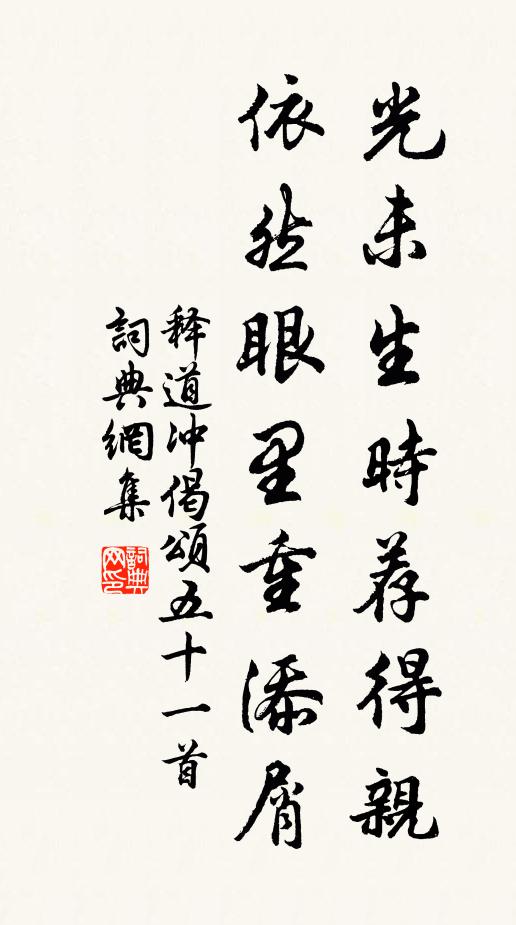 光未生時荐得親
依然眼里重添屑
释道冲偈頌五十一首
詞典網集
詞典网印